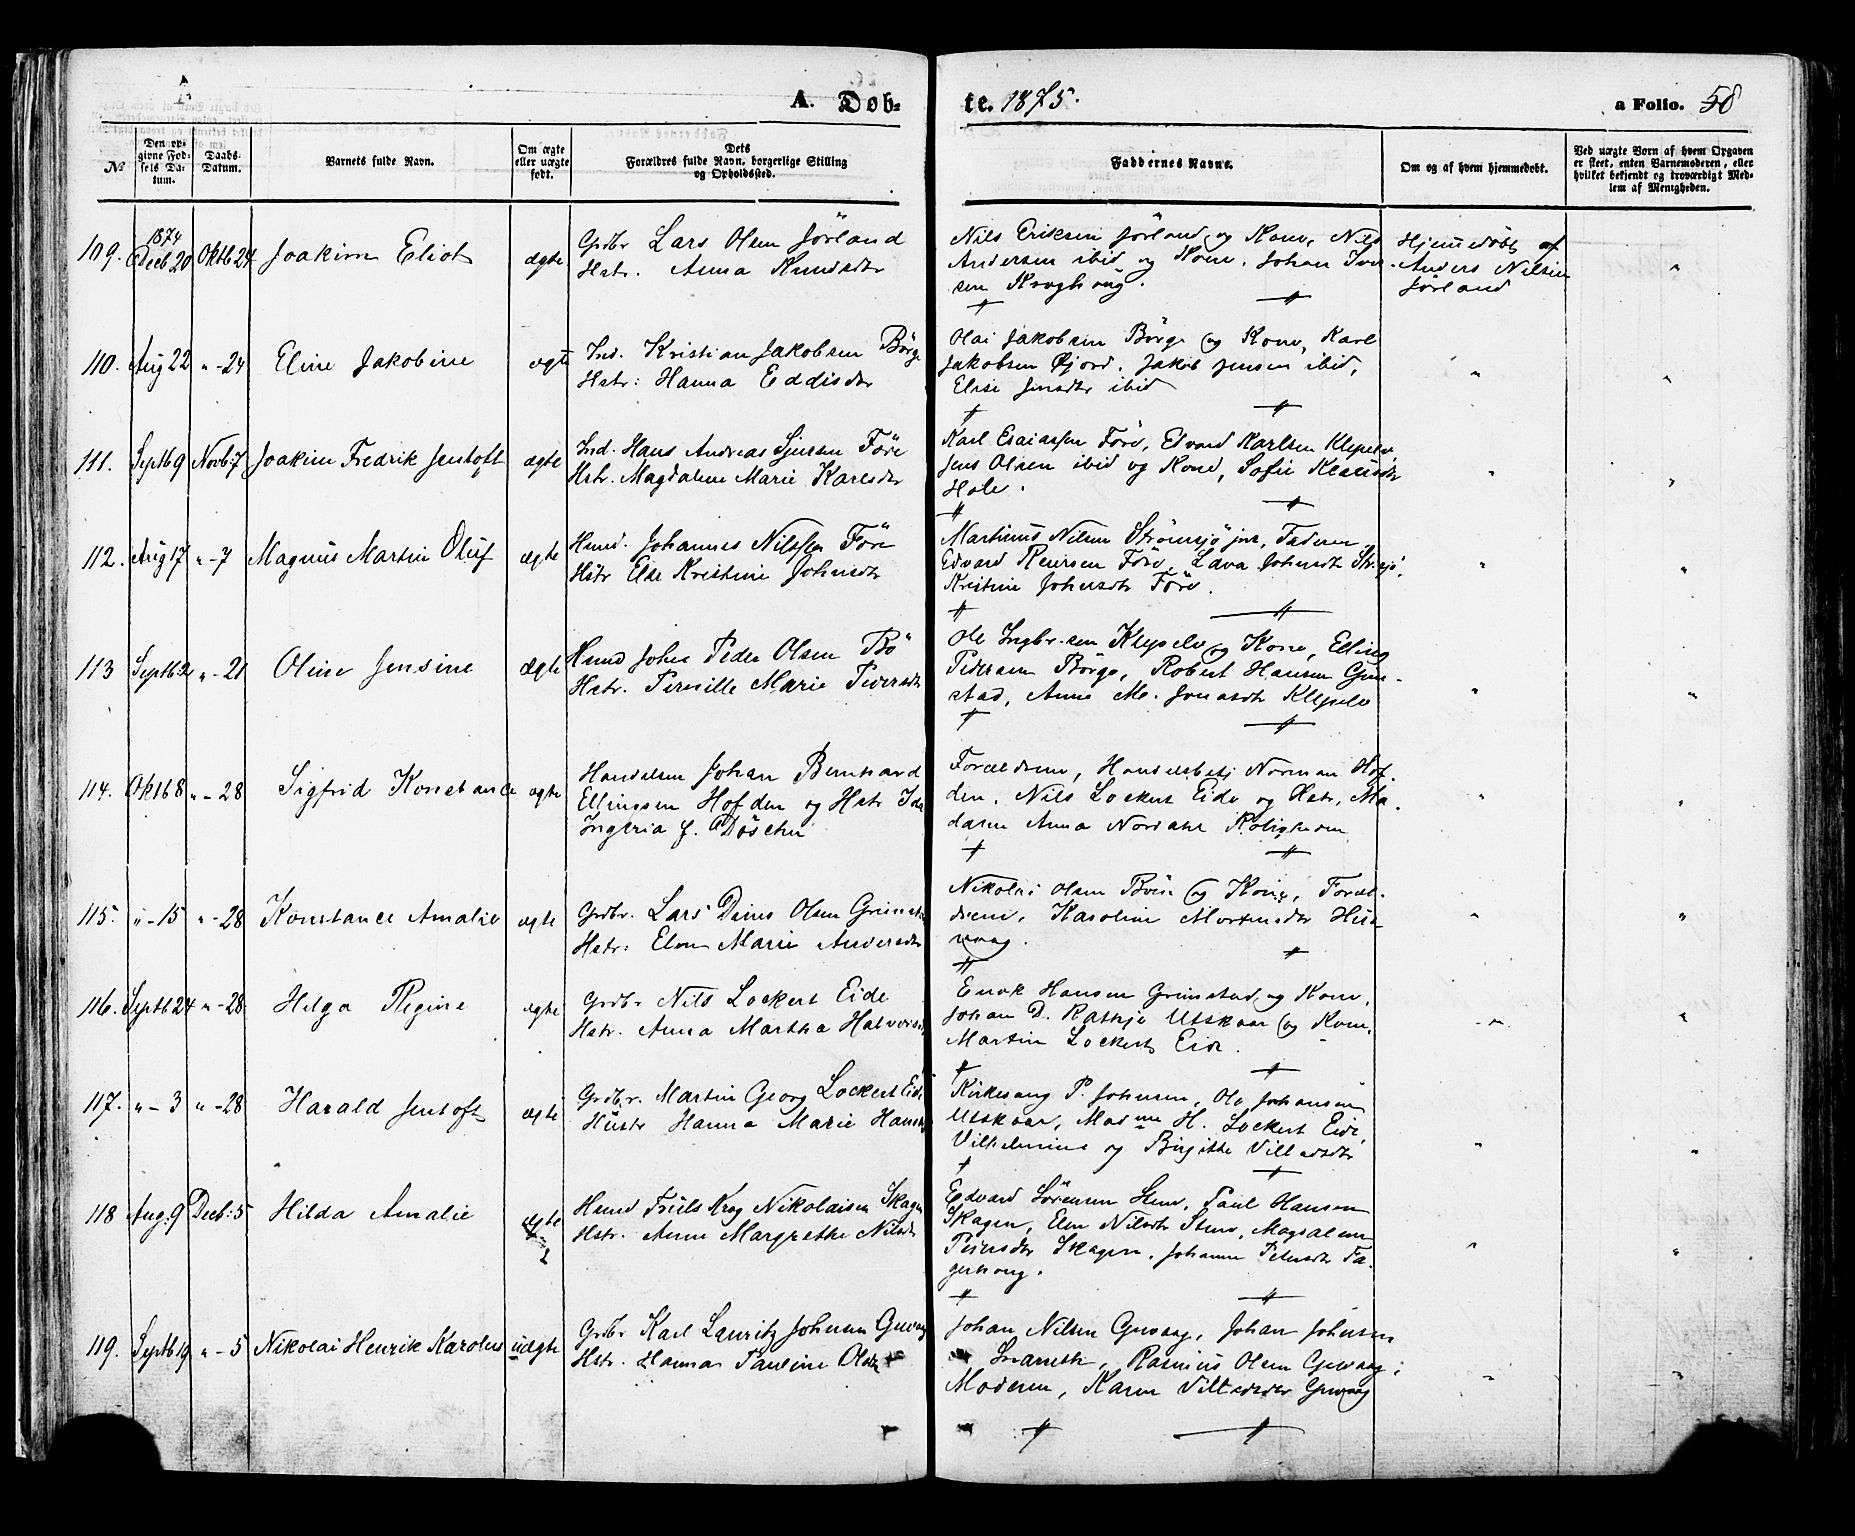 A. Døb-
te. 1875.
a Folio. 58
№
Den op-
givne Fød-
sels Da-
tum.
Daabs-
Datum.
Barnets fulde Navn.
Om ægte
eller uægte
født.
Dets
Forældres fulde Navn, borgerlige Stilling
og Opholdssted.
Faddernes Navne.
Om og af hvem hjemmedøbt.
Ved uægte Børn af hvem Opgaven
er skeet, enten Barnemoderen, eller
hvilket bekjendt og troværdigt Med-
lem af Menigheden.
109. 1874 Decb 20 Oktb 24 Joakim Eliot ægte
Grdbr Lars Olsen Jörland
Hstr. Anna Knudsdtr
Nils Eriksen Jörland og Kone, Nils
Andersen ibid og Kone. Johan Iver-
sen Kroghoug.
Hjemmedöbt af
Anders Nilsen
Jörland
"
110. Aug 22 " - 24 Eline Jakobine ægte
Ind. Kristian Jakobsen Börge
Hstr: Hanna Eddisdtr
Olai Jakobsen Börge og Kone, Karl
Jakobsen Øjord. Jakob Jensen ibid,
Elise Jensdtr ibid
" "
111. Septb 9 Novb 7 Joakim Fredrik Jentoft ægte
Ind. Hans Andreas Sjursen Före
Hstr. Magdalena Marie Karlsdtr
Karl Esaiassen Före, Edvard Karlsen Klepelv,
Jens Olsen ibid og Kone, Sofie Klausdtr
Hole.
" "
112. Aug 17 " - 7 Magnus Martin Oluf ægte
Hmd. Johannes Nilssen Före
Hstr Else Kristine Johnsdtr
Martinus Nilsen Strömsjö, Faderen
Edvard Reiersen Före, Lava Johnsdtr
Kristine Johnsdtr Före.
" "
113 Septb 2 " - 21 Oline Jensine ægte
Hmd Johan Peder Olsen Bö
Hstr. Pernille Marie Pedersdtr
Ole Ingbr.sen Klepelv og Kone, Elling
Pedersen Börge, Robert Hansen Grim-
stad, Anne M. Jonasdtr Klepelv
" "
114. Oktb 8 " - 28 Sigfrid Konstance ægte
Handelsm Johan Bernhard
Ellingsen Hofden og Hstr Ida
Ingeria f. Döscher
Forældrene, Handelsbetj Norman Hof-
den, Nils Lockert Eide og Hstr, Ma-
dame Anna Nordahl Roligheden
" "
115. " - 15 " - 28 Konstance Amalie ægte
Grdbr. Lars Dines Olsen Grimstad
Hstr: Elen Marie Andersdtr
Nikolai Olsen Böe og Kone, Foræl-
drene, Karoline Mortensdtr Hus-
vaag.
" "
116. Septb 24 " - 28 Helga Regine ægte
Grdbr Nils Lockert Eide
Hstr. Anna Martha Halvorsd
Enok Hansen Grimstad og Kone,
Johan D. Rathje Utskaar og Kone
Martin Lockert, Eide.
" "
117. " - 3 " - 28 Harald Jentoft ægte
Grdbr. Martin Georg Lockert Eide
Hustr Hanna Marie Hansd
Kirkesang P. Johnsen, Ole Johansen
Utskaar, Mad me H. Lockert Eide,
Vilhelmine og Birgitte Villadsdtr
" "
118 Aug: 9 Decb: 5 Hilda Amalie ægte
Hmd Truls Krog Nikolaisen Skagen
Hstr. Anne Margrethe Nilsdtr
Edvard Sörensen Steen, Paul Hansen
Skagen, Elen Nilsdtr Steen, Magdalene
Pedersdtr Skagen. Johanne Petersdtr Fa-
gerhoug.
" "
119. Septb 19 " - 5 Nikolai Henrik Karolus uægte
Grdbr Karl Lauritz Johnsen Guvaag
Hstr. Hanna Pauline Olsdtr
Johan Nilsen Guvaag, Johan Johnsen
Snarseth, Rasmus Olsen Guvaag,
Moderen, Karen Villadsdtr Guvaag
" "